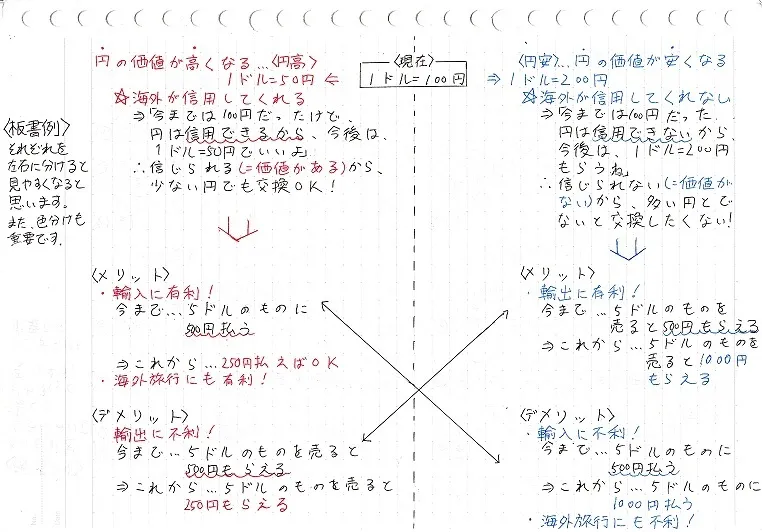 〈板書例〉
それぞれを
左右に分けると
見やすくなると
思います。
また、色分けも
重要です。
〈現在〉
1ドル=100円
円の価値が高くなる…〈円高〉
1ドル=50円 ⇐
☆海外が信用してくれる
⇒「今までは100円だったけど、
円は信用できるから、今後は、
1ドル=50円でいいよ」
∴信じられる(=価値がある)から、
少ない円でも交換OK!
〈メリット〉
・輸入に有利!
今まで…5ドルのものに
500円払う
⇒これから…250円払えばOK
・海外旅行にも有利!
〈デメリット〉
輸出に不利!
今まで…5ドルのものを売ると
500円もらえる
⇒これから…5ドルのものを売ると
250円もらえる
〈円安〉…円の価値が安くなる
⇒1ドル=200円
☆海外が信用してくれない
⇒「今までは100円だった…
円は信用できないから
今後は、1ドル=200円
もらうね」
∴信じられない(=価値が
ない)から、多い円とで
ないと交換したくない!
〈メリット〉
・輸出に有利!
今まで…5ドルのものを
売ると500円もらえる
⇒これから…5ドルのものを
売ると1000円
もらえる
〈デメリット〉
・輸入に不利!
今まで…5ドルのものに
500円払う
⇒これから…5ドルのものに
1000円払う
・海外旅行にも不利!